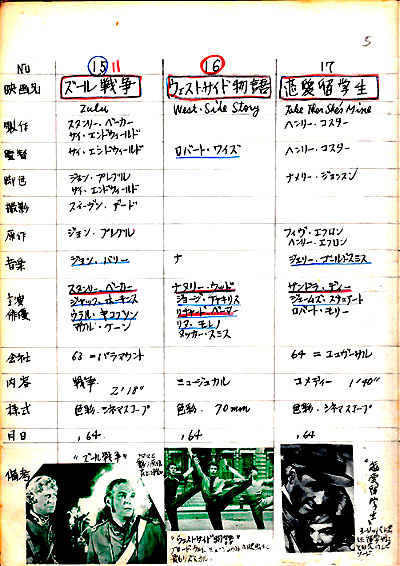 5
NO 15 11 16 17
映画名 ズール戦争 ウェストサイド物語 恋愛留学生
Zulu West Side Story Take Her She's Mine
製作 スタンリー・ベーカー ヘンリー・コスター
サイ・エンドフィールド
監督 サイ・エンドフィールド ロバート・ワイズ ヘンリー・コスター
脚色 ジョン・プレブル ナナリー・ジョンスン
サイ・エンドフィールド
撮影 スティーヴン・デード
原作 ジョン・プレブル フィヴ・エフロン
ヘンリー・エフロン
音楽 ジョン・バリー ジェリー・ゴールドスミス
主演俳優 スタンリー・ベーカー ナタリー・ウッド サンドラ・ディー
ジャック・ホーキンス ジョージ・チャキリス ジェームズ・スチュアート
ウララ・ヤコブソン リチャード・ベイマー ロバート・モリー
マイケル・ケーン リタ・モレノ
タッカー・スミス
会社 63 = パラマウント 64 =
内容 戦争 2'18" ミュージカル コメディー 1'40"
様式 色彩・シネマスコープ 色彩・70mm 色彩・シネマスコープ
月日 ,64 ,64 ,64
備考 "ズール戦争" "ウェストサイド物語" "恋愛留学生"